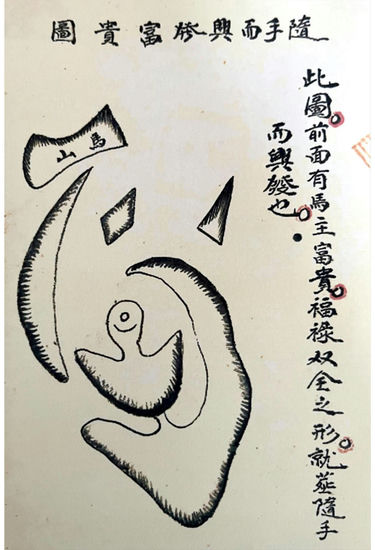 隨手而興富貴圖
此圖。前面有馬主富貴。福祿双全之形。就塟隨手
而興發也。
馬山